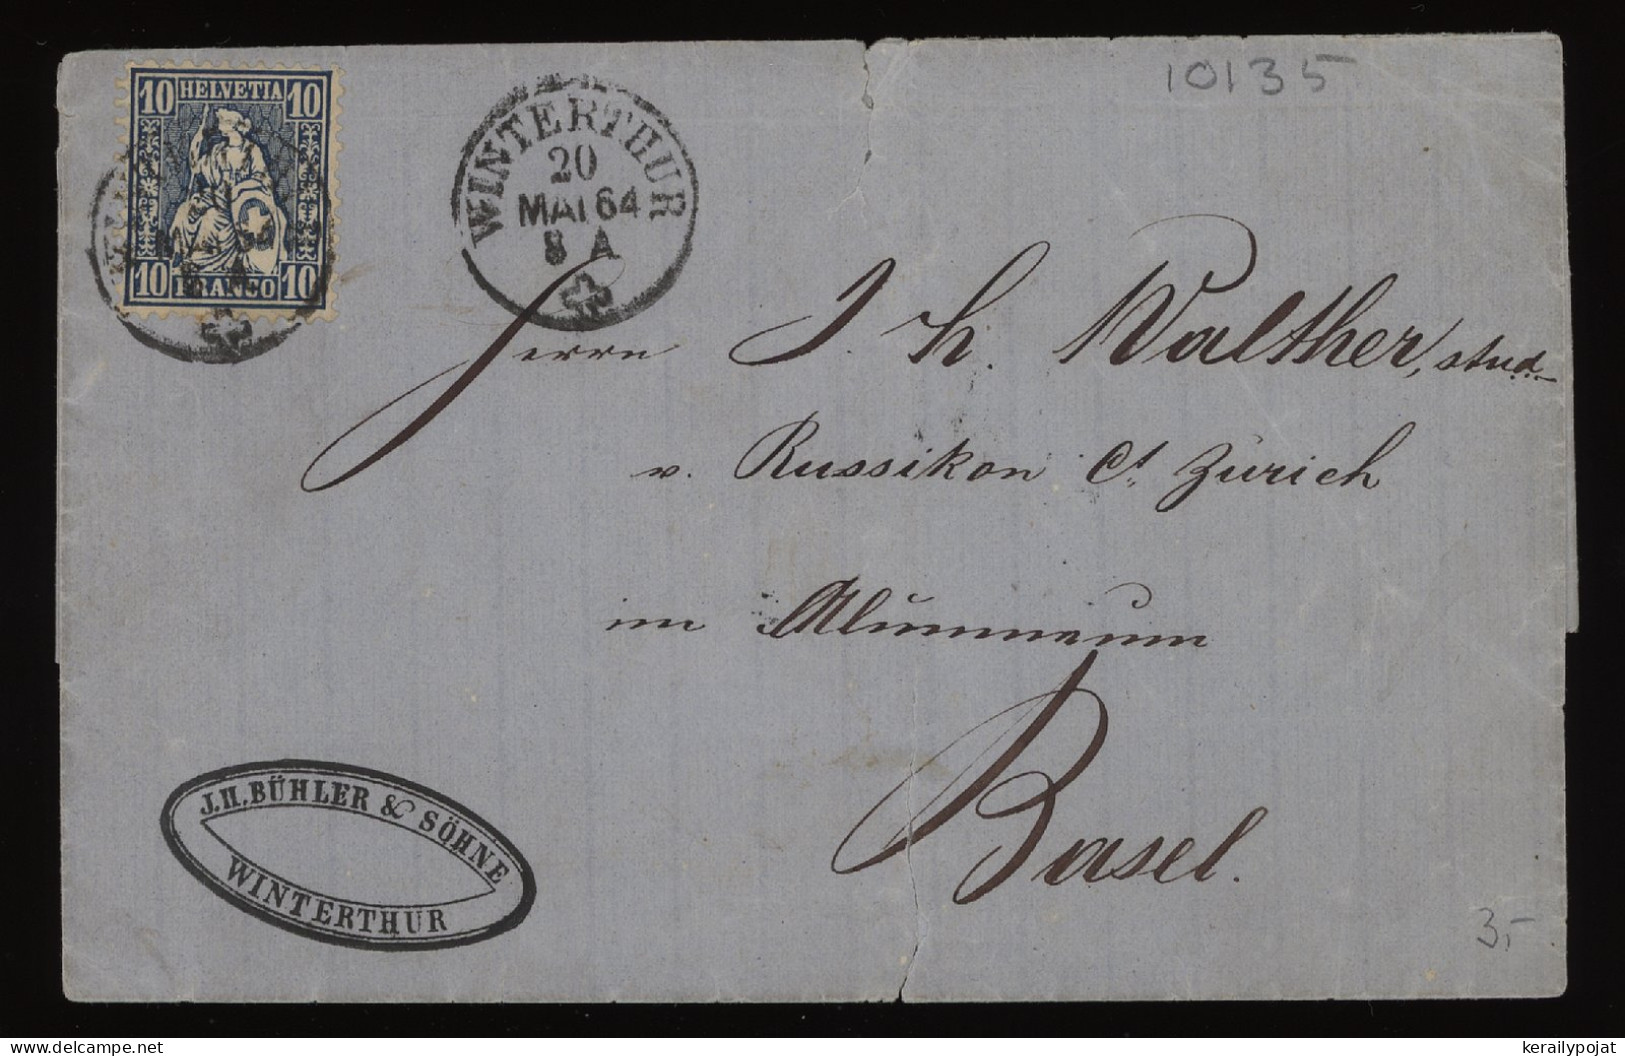 10135
10 HELVETIA 10
10 FRANCO 10
WINTERTHUR
20
MAI 64
8 A
Herrn J. H. Walther, stud.
v. Russikon Ct. Zürich
im Alumneum
Basel.
J.H. BÜHLER & SÖHNE
WINTERTHUR
3,-
kerailypojat